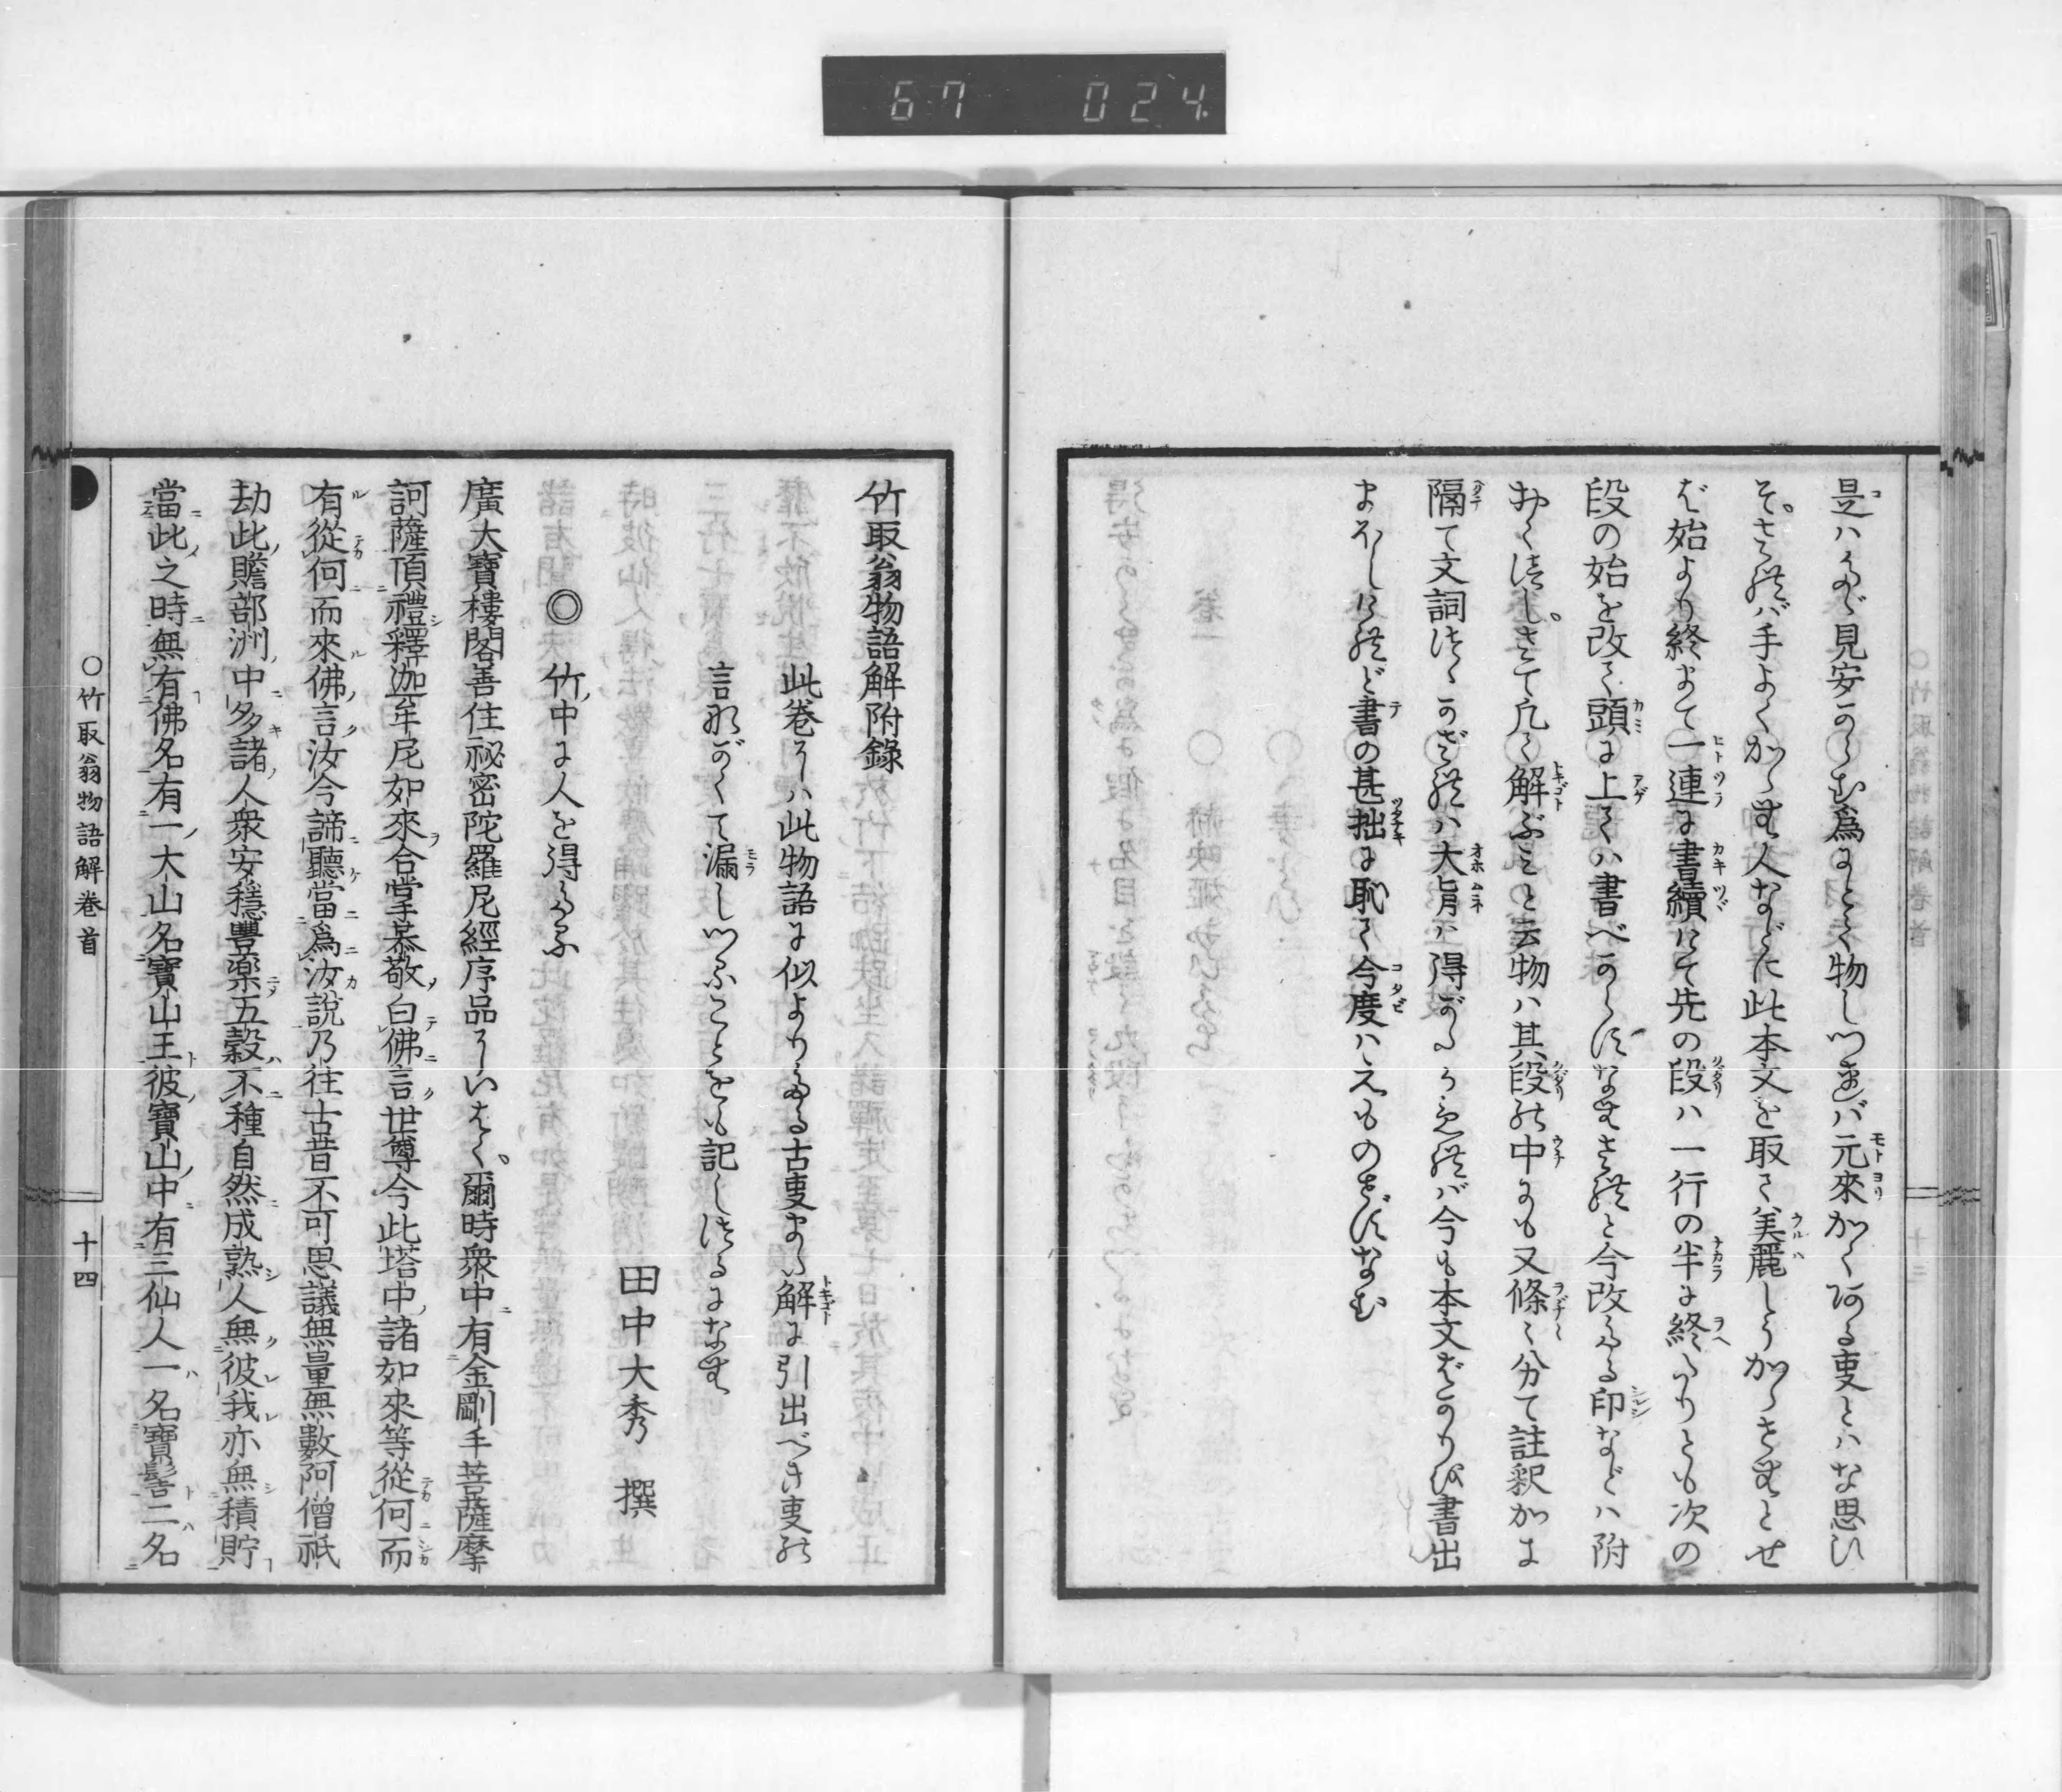 67 024
是ハたゞ見安からむ爲にとて物しつれバ元來かくある事とハな思ひ
そ。されバ手よくかゝむ人などに此本文を取てハ美麗しうかゝせむとせ
ば始より終まで一連に書續けて先の段ハ一行の半に終たりとも次の
段の始を改て頭に上てハ書べからずなむされど今改たる印などハ附
おくべし。さて凡て解ぶみと云物ハ其段の中にも又條〻分て註釈かに
隔て文詞つゞかざれハ大旨ハ得がたければ今も本文ばかりを書出
まほしけれど書の甚拙に恥て今度ハえものせずなむ
竹取翁物語解附錄
此卷にハ此物語に似よりたる古事また解に引出べき事の
言ながくて漏しつることをも記しつるになむ
田中大秀 撰
◎ 竹中に人を得たる
廣大寶樓閣善住祕密陀羅尼經序品にいはく。爾時衆中有金剛手菩薩摩
訶薩頂禮釋迦牟尼如來合掌恭敬白佛言世尊今此塔中諸如來等從何而
有從何而來佛言汝今諦聽當爲汝說乃往古昔不可思議無量無數阿僧祇
劫此贍部洲中多諸人衆安穩豐樂五穀不種自然成熟人無彼我亦無積貯
當此之時無有佛名有一大山名寶山王彼寶山中有三仙人一名寶髻二名
○竹取翁物語解卷首
十四